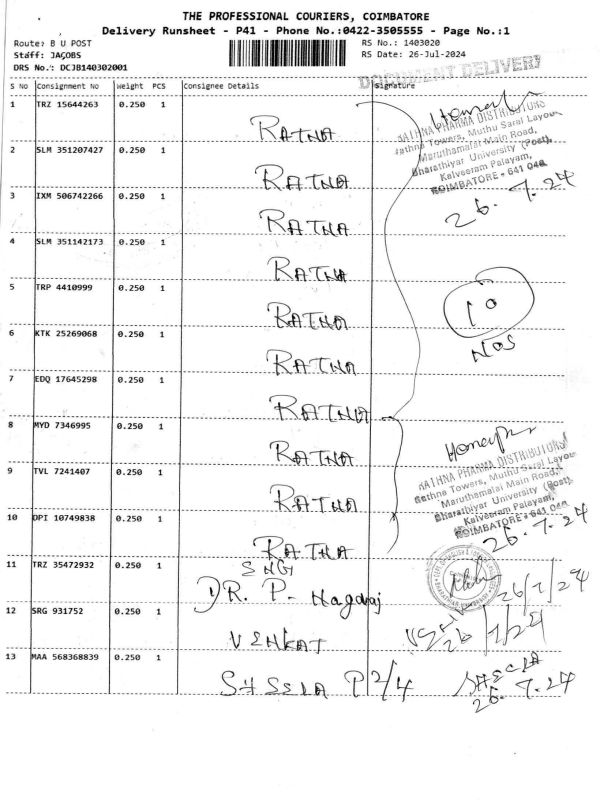 THE PROFESSIONAL COURIERS, COIMBATORE
Delivery Runsheet - P41 - Phone No.:0422-3505555 - Page No.:1
Route: B U POST
Staff: JACOBS
DRS No.: DCJB140302001
RS No.: 1403020
RS Date: 26-Jul-2024
DOCUMENT DELIVERY
S No Consignment No Weight PCS Consignee Details Signature
1 TRZ 15644263 0.250 1 RATNA
2 SLM 351207427 0.250 1 RATNA
3 IXM 506742266 0.250 1 RATNA
4 SLM 351142173 0.250 1 RATNA
5 TRP 4410999 0.250 1 RATNA
6 KTK 25269068 0.250 1 RATNA
7 EDQ 17645298 0.250 1 RATNA
8 MYD 7346995 0.250 1 RATNA
9 TVL 7241407 0.250 1 RATNA
10 DPI 10749838 0.250 1 RATNA
RATHNA PHARMA DISTRIBUTORS
Rathna Towers, Muthu Saral Layout
Maruthamalai Main Road,
Bharathiyar University (Post),
Kalveeram Palayam,
COIMBATORE - 641 046
26.7.24
10
NOS
RATHNA PHARMA DISTRIBUTORS
Rathna Towers, Muthu Saral Layout
Maruthamalai Main Road,
Bharathiyar University (Post),
Kalveeram Palayam,
COIMBATORE - 641 046
26.7.24
11 TRZ 35472932 0.250 1 ENGl
DR. P. Nagaraj 26/7/24
12 SRG 931752 0.250 1 VENKAT
26/7/24
13 MAA 568368839 0.250 1 P 2/4
26.7.24